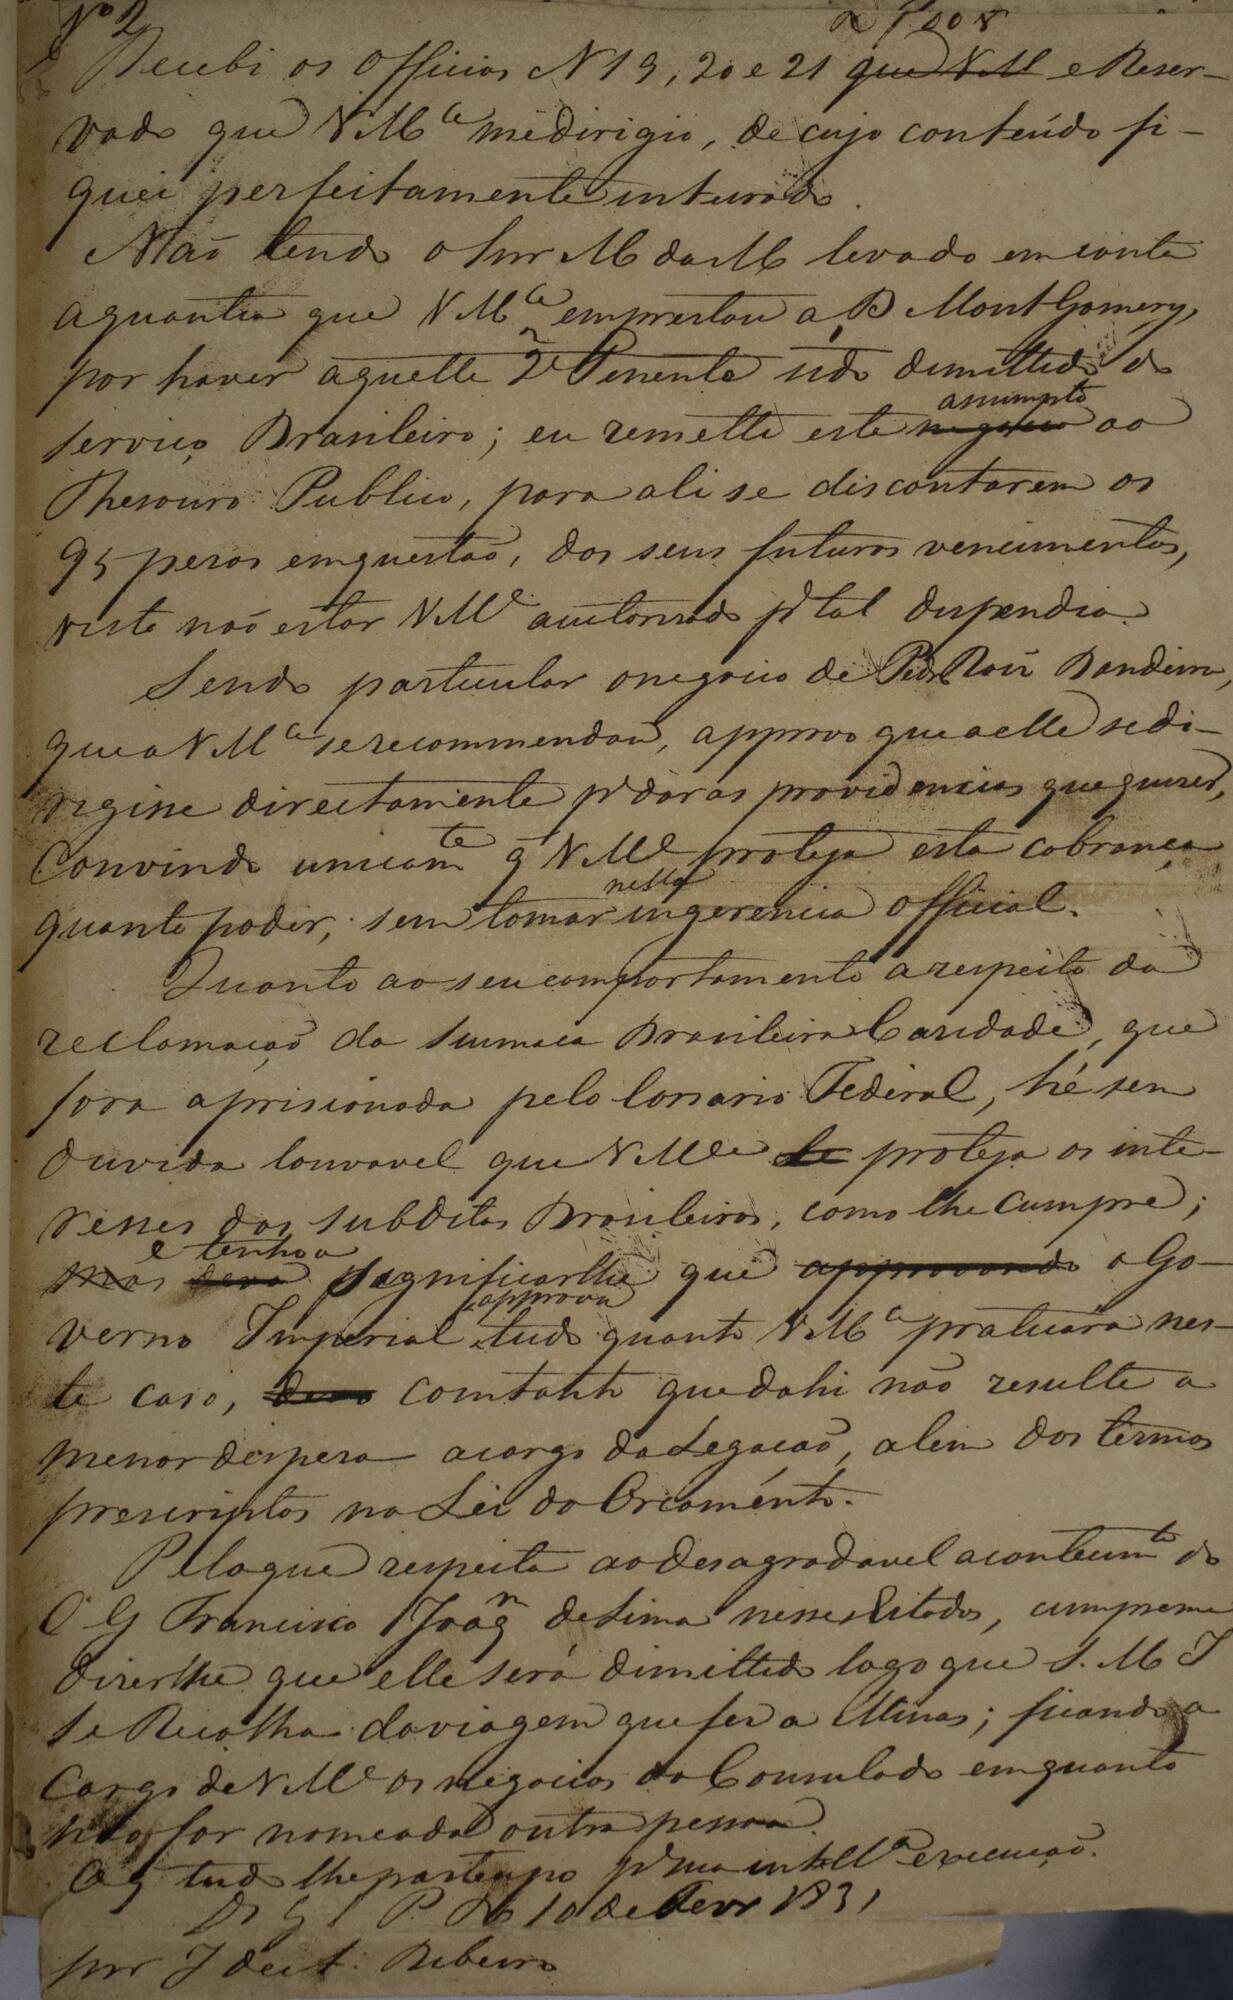 Nº 2
Recebi os Officios N 19, 20 e 21 que V. M e Reser-
vado que V Mce me dirigio, de cujo conteúdo fi-
quei perfeitamente inteirado.
Não tendo o Snr M da M levado em conta
a quantia que V Mce emprestou a B MontGomery,
por haver aquelle 2º Tenente sido demittido do
assumpto
serviço Brasileiro; eu remetti este negocio ao
Thesouro Publico, para ali se discontarem os
95 pesos em questão, dos seus futuros vencimentos,
visto não estar V Mce autorisado pª tal dispendio.
Sendo particular o negocio de Pedro Roiz Bandeira,
que a V Mce se recommendou, approvo que a elle se di-
rigisse directamente pª dar as providencias que quiser,
Convindo unicamte q V Mce proteja esta cobrança
nella
quanto poder; sem tomar ingerencia official.
Quanto ao seu comportamento a respeito da
reclamação da Sumaca Brasileira Caridade, que
fora aprisionada pelo Corsario Federal, hé sem
duvida louvavel que V Mce proteja os inte-
resses dos subditos Brasileiros, como lhe cumpre;
e tenho a
mas devo significar lhe que approvando o Go-
approva
verno Imperial tudo quanto V Mce praticára nes-
te caso, devo comtanto que dahi não resulte a
menor despesa a cargo da Legação, alem dos termos
prescriptos na Lei do Orcaménto.
Pelo que respeita ao desagradavel acontecimto do
C G Francisco Joaqn de Lima nesses Estados, cumpre me
dizer lhe que elle será dimittido logo que S. M I
se Recolha da viagem que fez a Minas; ficando a
Cargo de V Mce os negocios do Consulado emquanto
não for nomeada outra pessoa.
O q tudo lhe participo pª sua intellª e execução.
Ds G P. R 10 de Fevr 1831
por J de S. Ribeiro